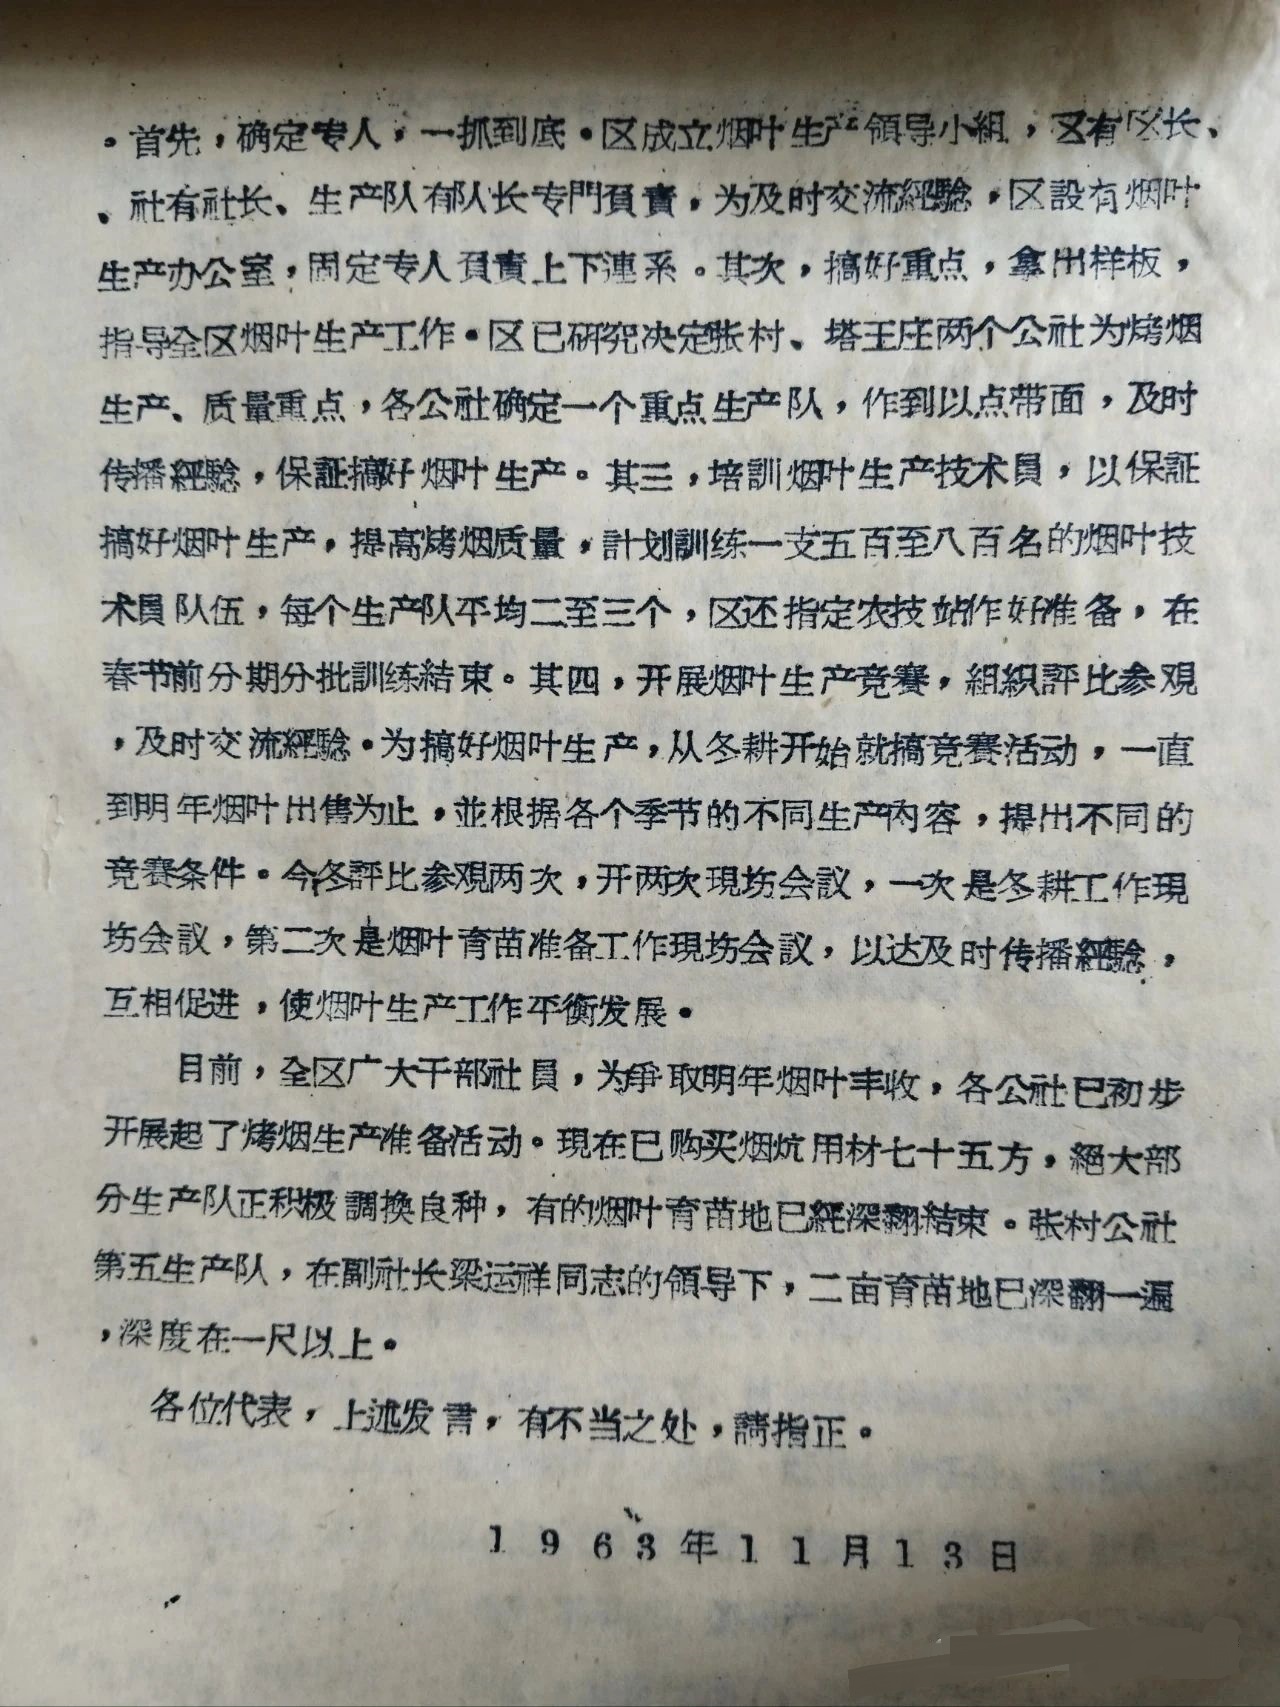 。首先，确定专人，一抓到底。区成立烟叶生产領导小組，区有区长、
、社有社长、生产队有队长专門負責，为及时交流經驗，区設有烟叶
生产办公室，固定专人負責上下連系。其次，搞好重点，拿出样板，
指导全区烟叶生产工作。区已研究决定张村、塔王庄两个公社为烤烟
生产、质量重点，各公社确定一个重点生产队，作到以点带面，及时
传播經驗，保証搞好烟叶生产。其三，培訓烟叶生产技术員，以保証
搞好烟叶生产，提高烤烟质量，計划訓练一支五百至八百名的烟叶技
术員队伍，每个生产队平均二至三个，区还指定农技站作好准备，在
春节前分期分批訓练結束。其四，开展烟叶生产竞賽，組織評比参观
，及时交流經驗。为搞好烟叶生产，从冬耕开始就搞竞賽活动，一直
到明年烟叶出售为止，並根据各个季节的不同生产內容，提出不同的
竞賽条件。今冬評比参观两次，开两次現坊会議，一次是冬耕工作現
坊会議，第二次是烟叶育苗准备工作現坊会議，以达及时传播經驗，
互相促进，使烟叶生产工作平衡发展。
目前，全区广大干部社員，为爭取明年烟叶丰收，各公社已初步
开展起了烤烟生产准备活动。現在已购买烟炕用材七十五方，絕大部
分生产队正积极調換良种，有的烟叶育苗地已經深翻結束。张村公社
第五生产队，在副社长梁运祥同志的領导下，二亩育苗地已深翻一遍
，深度在一尺以上。
各位代表，上述发言，有不当之处，請指正。
1963年11月13日